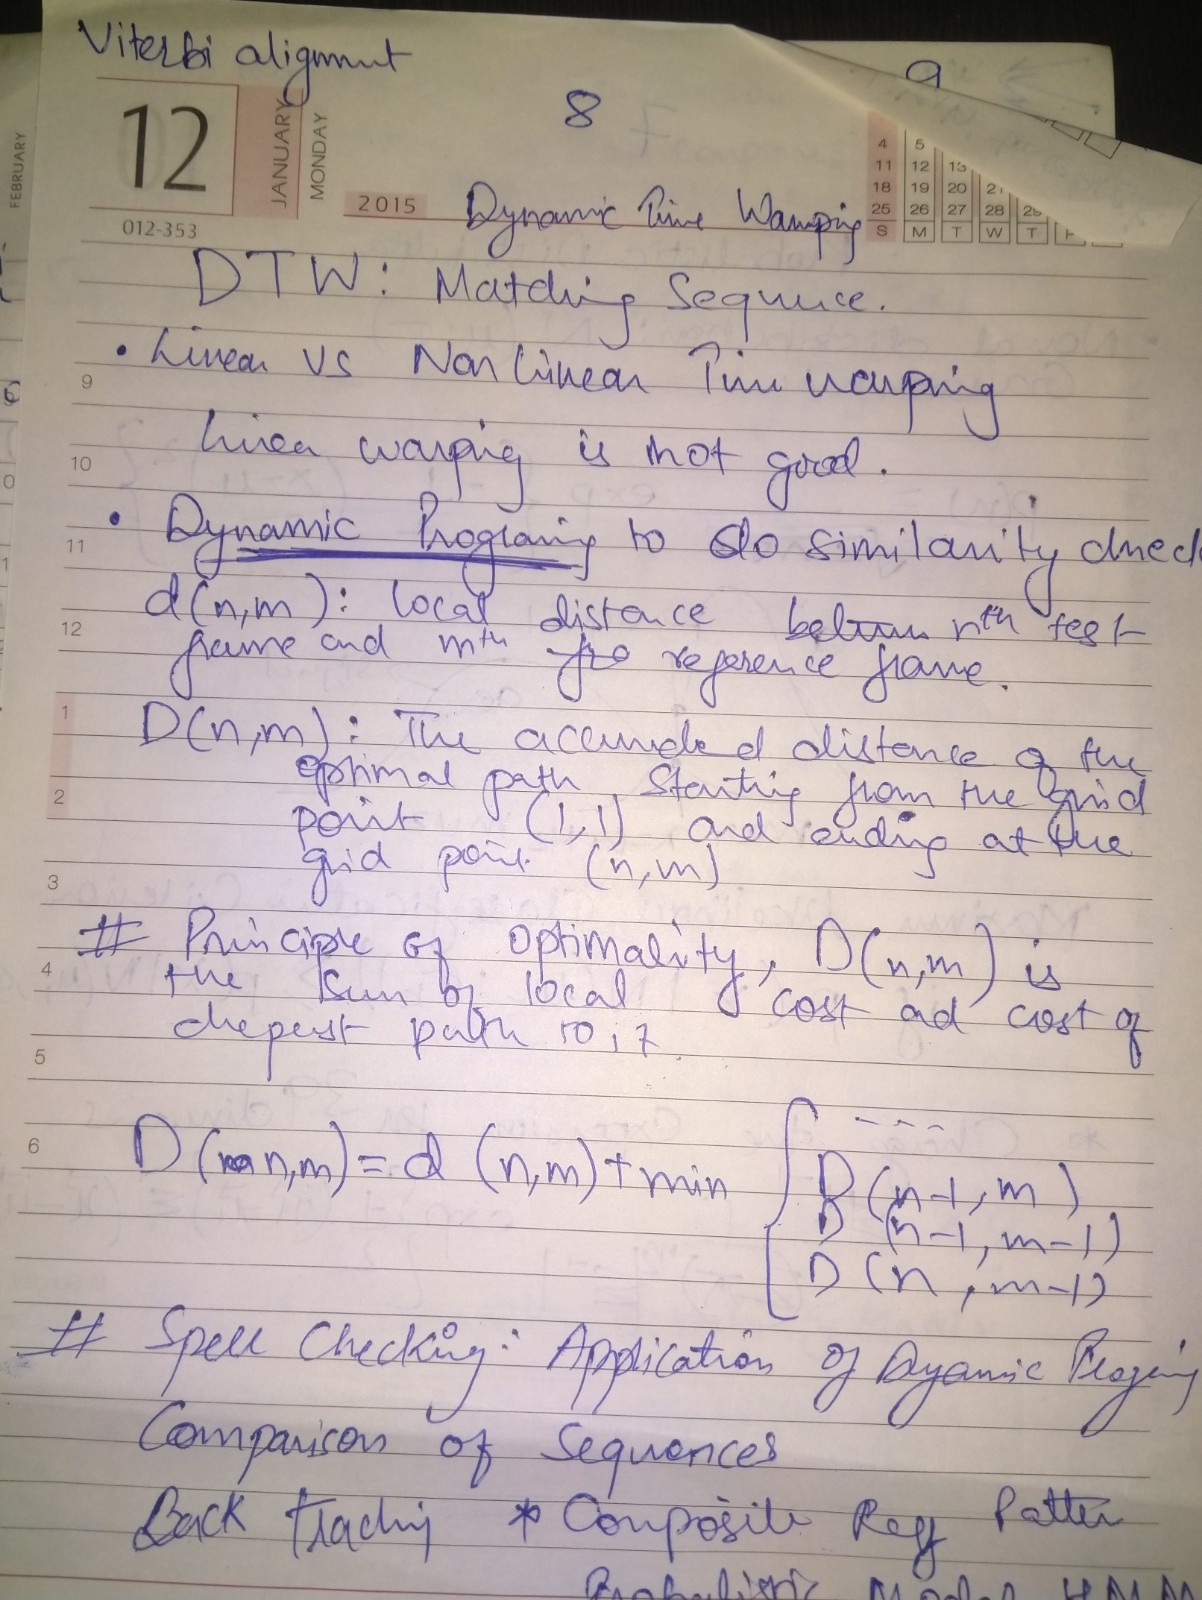 Viterbi alignmut
8
9
FEBRUARY
12
JANUARY
MONDAY
4 5
11 12 13
18 19 20 21
25 26 27 28 29
S M T W T F
012-353
2015
Dynamic Time Warping
DTW: Matching Sequence.
• Linear vs Non linear Time warping
9
Linea warpig is not good.
10
• Dynamic Programing to do similarity check
11
d(n,m): local distance between nth test
12
frame and mth reference frame.
1
D(n,m): The accumded distance of the
optimal path, starting from the grid
2
point (1,1) and ending at the
grid point (n,m)
3
# Principle of optimality, D(n,m) is
4
the sum of local cost ad cost of
chepest path to it.
5
6
D(n,m) = d(n,m) + min { ----
D(n-1, m)
D(n-1, m-1)
D(n, m-1)
# Spell Checking: Application of Dyamic Proging
Comparison of Sequences
Back tracking * Composite Reff Patter
Probabilistic Model HMM